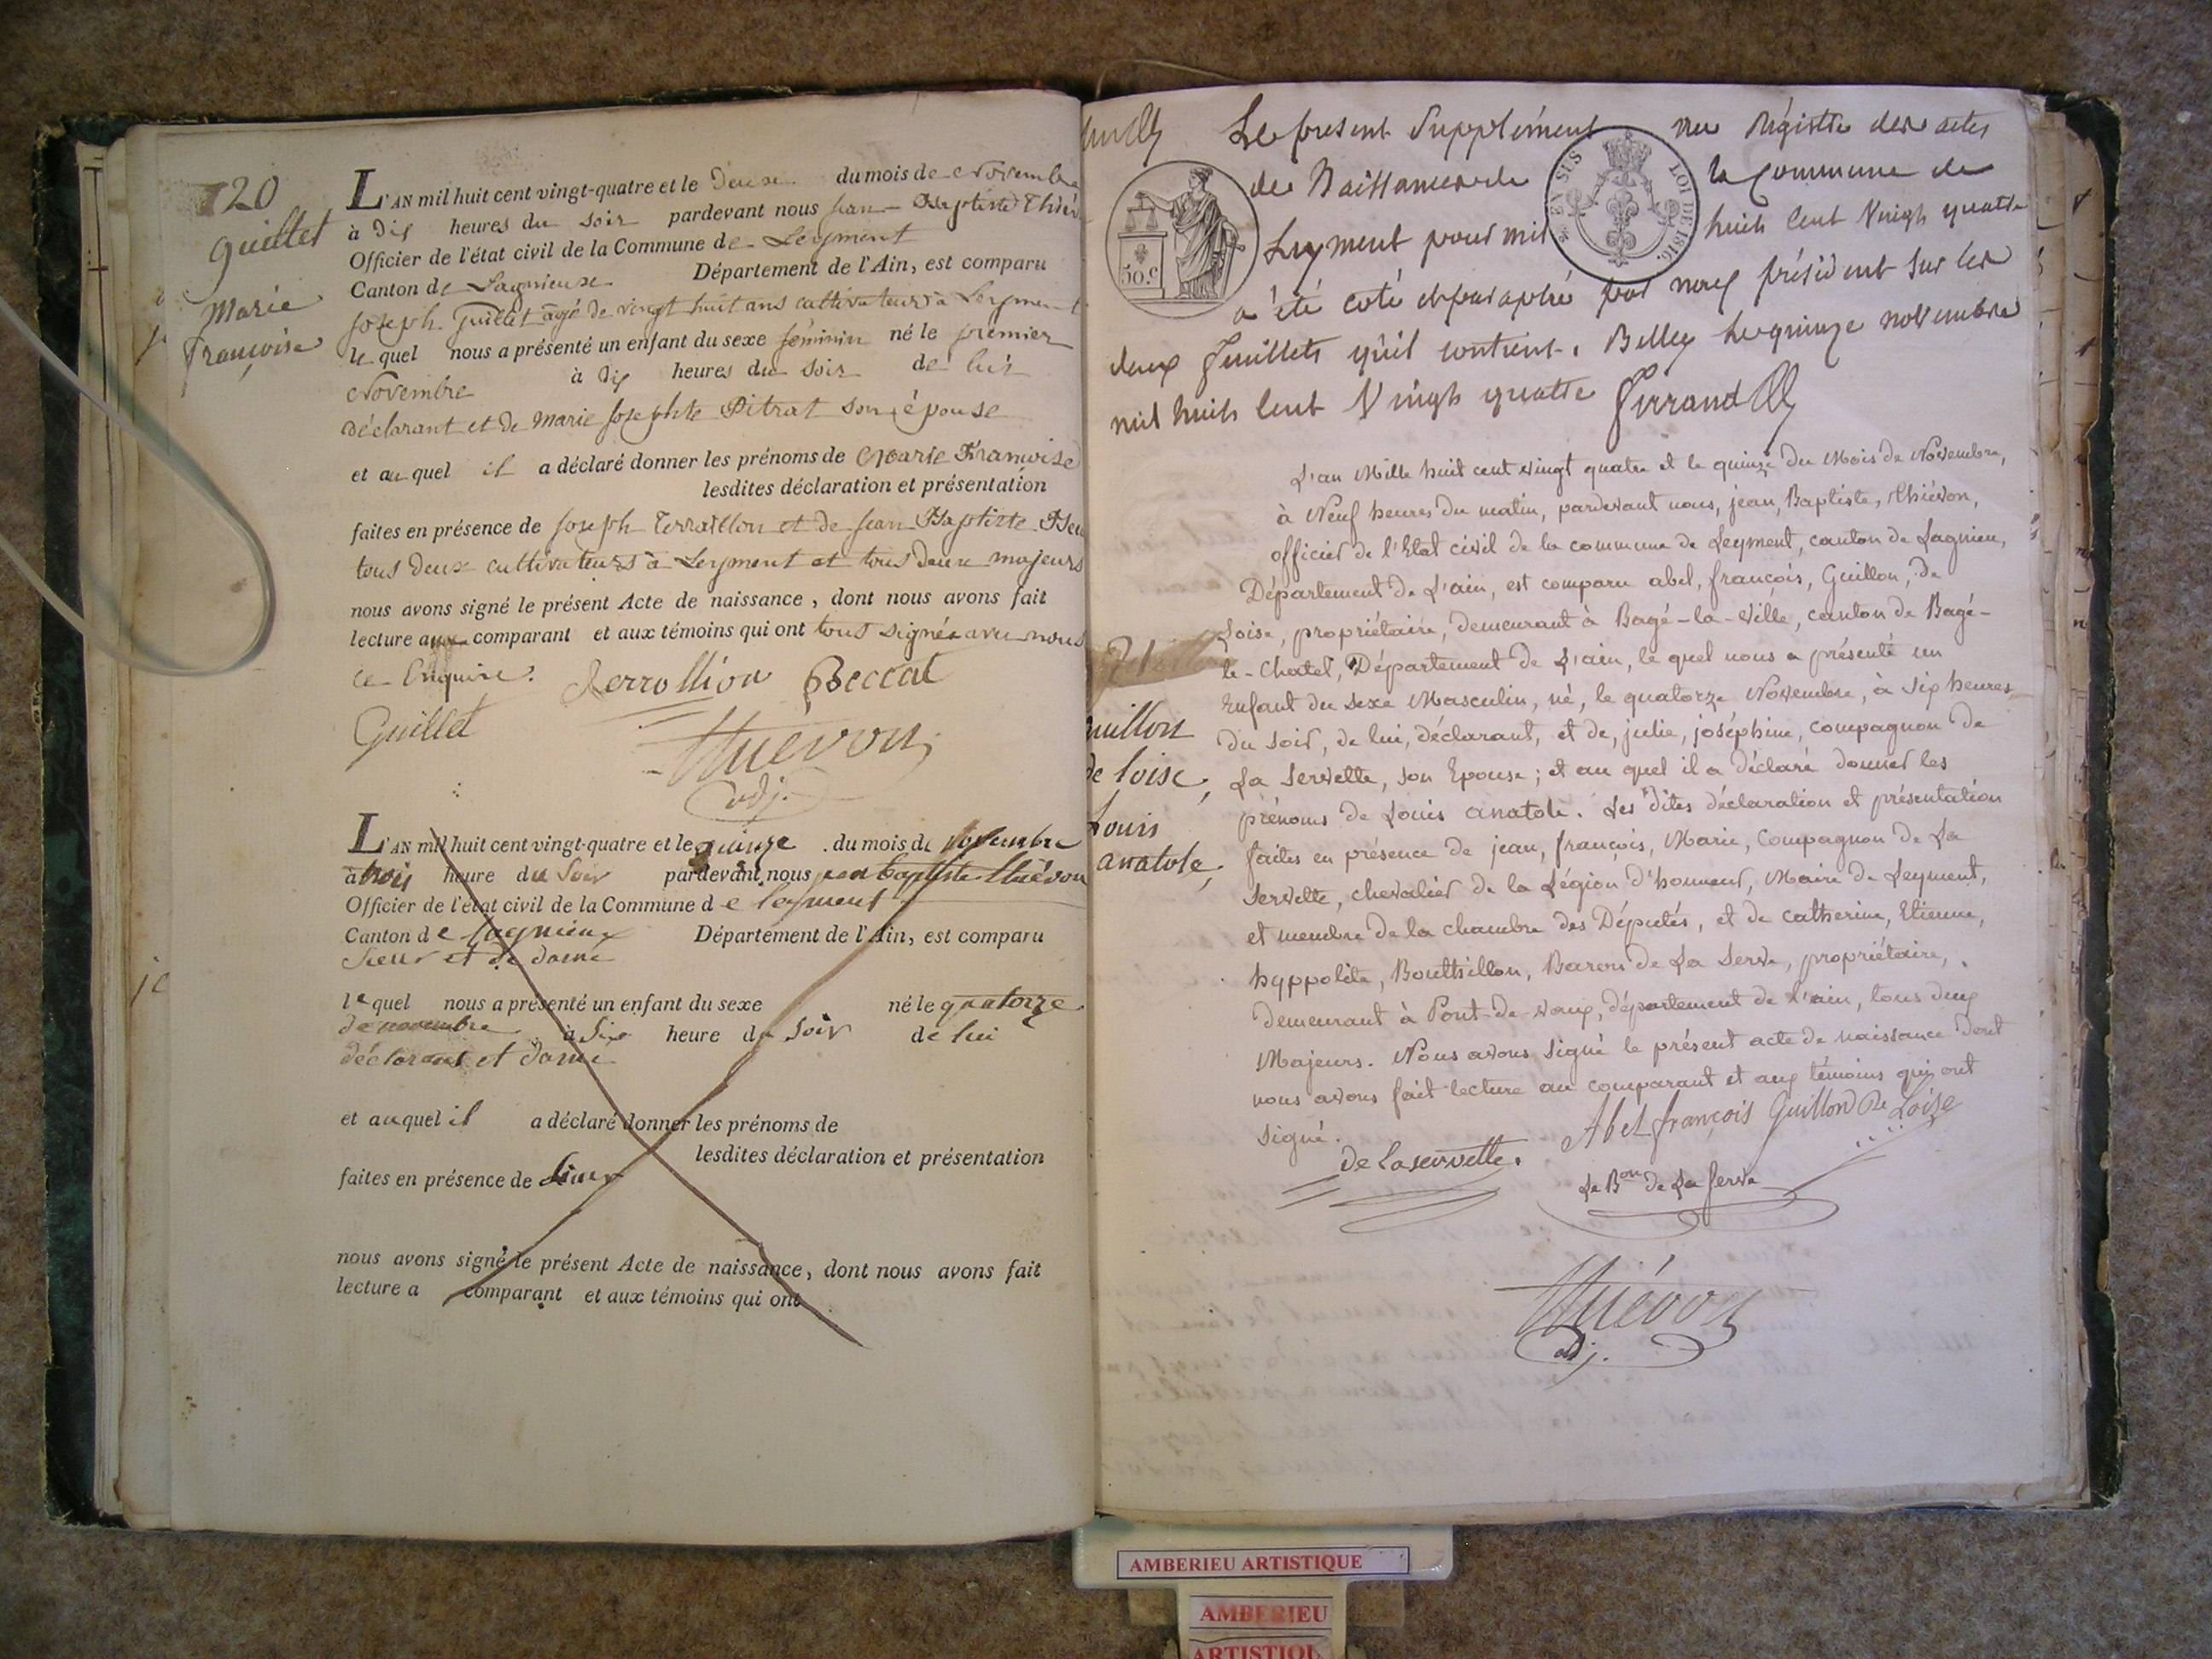 120
Guillet
Marie
Françoise
L'AN mil huit cent vingt-quatre et le deux du mois de Novembre
à dix heures du soir pardevant nous jean-Baptiste Thiév
Officier de l'état civil de la Commune de Leyment
Canton de Lagnieux Département de l'Ain, est comparu
joseph Guillet agé de vingt huit ans cultivateur à Leyment
le quel nous a présenté un enfant du sexe féminin né le premier
Novembre à dix heures du soir de lui
déclarant et de marie josephte Pitrat son épouse
et au quel il a déclaré donner les prénoms de Marie Francoise
lesdites déclaration et présentation
faites en présence de joseph Terraillon et de jean Baptiste
tous deux cultivateurs à Leyment et tous deux majeurs
nous avons signé le présent Acte de naissance, dont nous avons fait
lecture aux comparant et aux témoins qui ont tous signés avec nous
ce Enquire. Terrollion Beccat
Guillet Thiévon
adj.
L'AN mil huit cent vingt-quatre et le quinze du mois de novembre
à trois heure du soir pardevant nous jean baptiste thiévon
Officier de l'état civil de la Commune de leyment
Canton de lagnieux Département de l'Ain, est comparu
sieur et de dame
le quel nous a présenté un enfant du sexe né le quatorze
de novembre à Six heure du Soir de lui
déclarant et dame
et auquel il a déclaré donner les prénoms de
lesdites déclaration et présentation
faites en présence de sieur
nous avons signé le présent Acte de naissance, dont nous avons fait
lecture a comparant et aux témoins qui ont
Le present Supplément au Régistre des actes
de Naissances de la Commune de
Leyment pour mil huit cent Vingt quatre
a été coté et paraphé par nous président sur les
deux feuillets qu'il contient. Belley le quinze novembre
mil huit cent Vingt quatre Girrand
50.c
EN SUS
LOI DE 1816.
L'an Mille huit cent vingt quatre et le quinze du Mois de Novembre,
à Neuf heures du matin, pardevant nous, jean, Baptiste, Thiévon,
officier de l'Etat civil de la commune de Leyment, canton de Lagnieu,
Département de L'ain, est comparu abel, françois, Guillon, de
Loise, propriétaire, demeurant à Bagé-la-ville, canton de Bagé-
le-Chatel, Département de L'ain, le quel nous a présenté un
Enfant du sexe Masculin, né, le quatorze Novembre, à six heures
du soir, de lui, déclarant, et de, julie, joséphine, compagnon de
La Servette, son Epouse; et au quel il a déclaré donner les
prénoms de Louis anatole. Les dites déclaration et présentation
faites en présence de jean, françois, Marie, Compagnon de La
Servette, chevalier de la Légion d'honneur, Maire de Leyment,
et membre de la chambre des Députés, et de catherine, Etienne,
hyppolite, Bouthillon, Baron de La Serve, propriétaire,
demeurant à Pont-de-vaux, département de L'ain, tous deux
Majeurs. Nous avons signé le présent acte de naissance dont
nous avons fait lecture au comparant et aux témoins qui ont
signé. Abel françois Guillon De Loise
de Laservette. Le Bon de La Serve
Thiévon
adj.
uillon
de loise,
Louis
anatole,
AMBERIEU ARTISTIQUE
AMBERIEU
ARTISTIQU